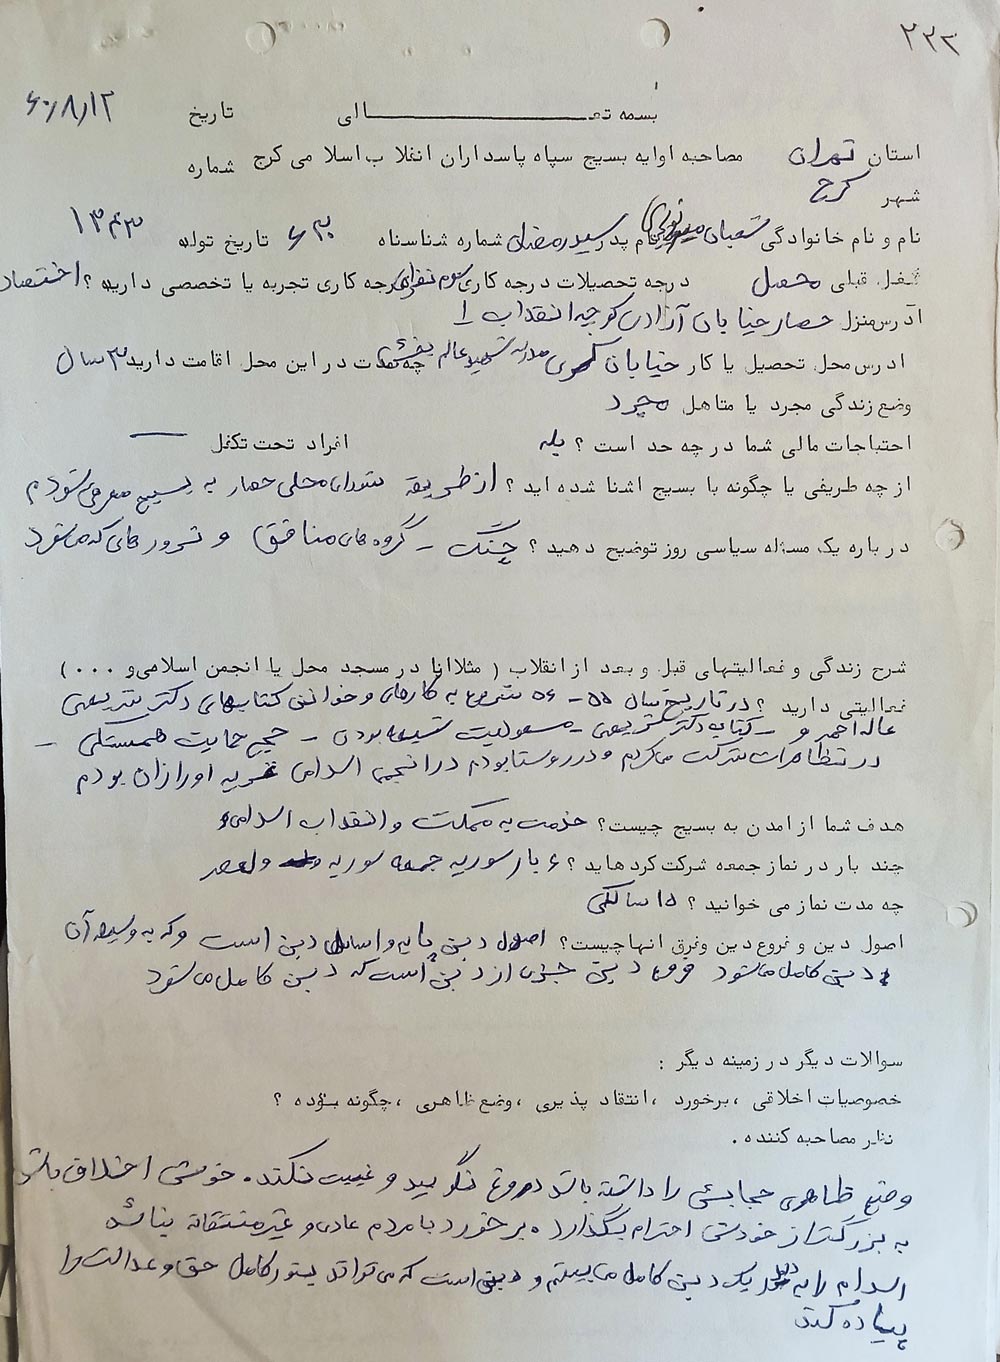 ۲۲۳
بسمه تعـــــــالی تاریخ ۶۰/۸/۱۲
استان تهران مصاحبه اولیه بسیج سپاه پاسداران انقلاب اسلامی کرج شماره
شهر کرج
نام و نام خانوادگی شعبان میرنوری نام پدر سیدرمضان شماره شناسنامه تاریخ تولد ۱۳۴۳
شغل قبلی محصل درجه تحصیلات درجه کاری سوم نظری درجه کاری تجربه یا تخصصی دارید؟ اختصاد
آدرس منزل حصار خیابان آزادی کوچه انقلاب ۱
ادرس محل تحصیل یا کار خیابان مدرسه شهید چه مدت در این محل اقامت دارید ۳ سال
وضع زندگی مجرد یا متاهل مجرد
احتیاجات مالی شما در چه حد است؟ بله افراد تحت تکفل —
از چه طریقی یا چگونه با بسیج اشنا شده اید؟ از طریقه شورای محلی حصار به بسیج معرفی شودم
در باره یک مسئله سیاسی روز توضیح دهید؟ جنگ - گروه های منافق و ترور های که میشود
شرح زندگی و فعالیتهای قبل و بعد از انقلاب (مثلا ایا در مسجد محل یا انجمن اسلامی و ...)
فعالیتی دارید؟ در تاریخ سال ۵۵ - ۵۶ شروع به کارهای و خواندن کتابهای دکتر شریعتی
عاله احمد و - کتاب دکتر شریعتی - مسعولیت شیعه بودن - حج حمایت همبستگی -
در تظاهرات شرکت میکردم و در روستا بودم در انجمن اسلامی قریه اورازان بودم
هدف شما از امدن به بسیج چیست؟ خدمت به مملکت و انقلاب اسلامی
چند بار در نماز جمعه شرکت کرده اید؟ ۶ بار سوریه جمعه سوریه ولعصر
چه مدت نماز می خوانید؟ ۱۵ سالگی
اصول دین و فروع دین وفرق انهاچیست؟ اصول دین پایه و اساس دین است و که به وسیله آن
دین کامل میشود فروع دین جزی از دین است که دین کامل می شود
سوالات دیگر در زمینه دیگر :
خصوصیات اخلاقی ، برخورد ، انتقاد پذیری ، وضع ظاهری ، چگونه بوده ؟
نظر مصاحبه کننده .
وضع ظاهری حجابش را داشته باشد دروغ نگویید و غیبت نکند. خوش اخلاق باشد
به بزرگتر از خودش احترام بگذارد. برخورد با مردم عادی و غیر منتقانه نباشد
اسلام را به یک دین کامل می بینم و دینی است که می تواند بتور کامل حق و عدالت را
پیاده کند